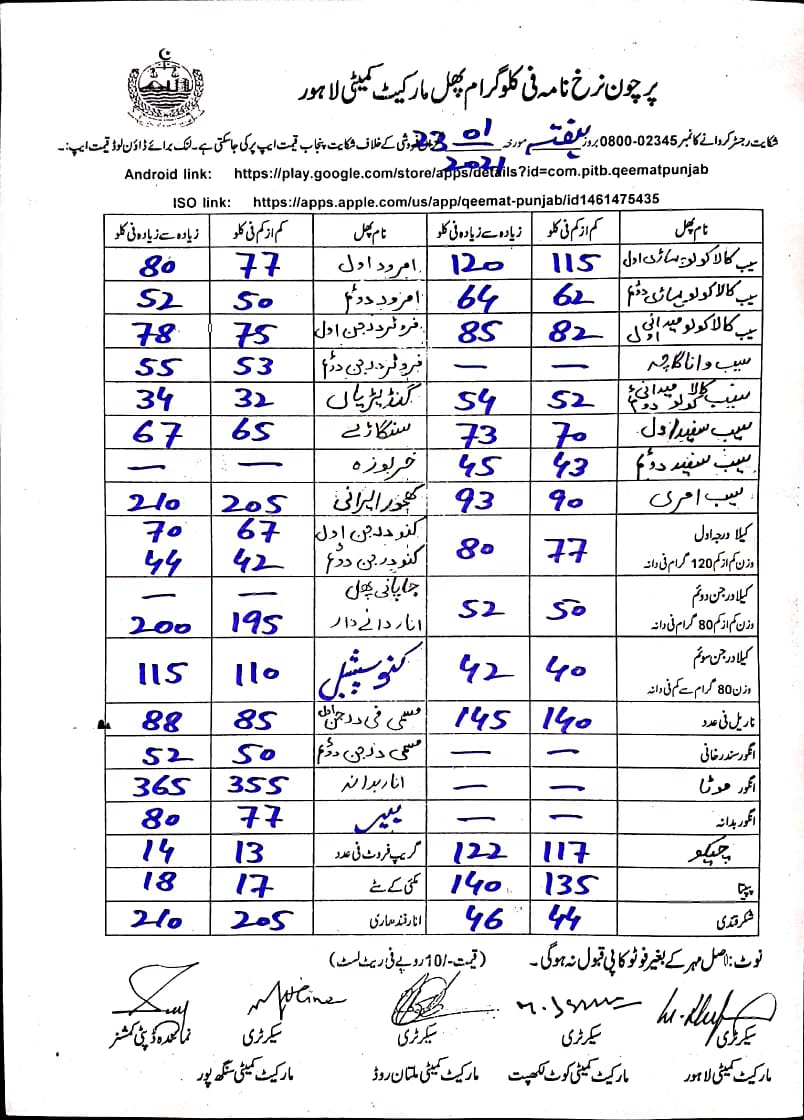 پرچون نرخ نامہ فی کلو گرام پھل مارکیٹ کمیٹی لاہور
شکایت رجسٹر کروانے کا نمبر 0800-02345 بروز ہفتہ مورخہ 23 01 2021 فروشی کے خلاف شکایت پنجاب قیمت ایپ پر کی جاسکتی ہے۔ لنک برائے ڈاؤن لوڈ قیمت ایپ:۔
Android link: https://play.google.com/store/apps/details?id=com.pitb.qeematpunjab
ISO link: https://apps.apple.com/us/app/qeemat-punjab/id1461475435
نام پھل کم از کم فی کلو زیادہ سے زیادہ فی کلو نام پھل کم از کم فی کلو زیادہ سے زیادہ فی کلو
سیب کالا کولو پہاڑی اول 115 120 امرود اول 77 80
سیب کالا کولو پہاڑی دوئم 62 64 امرود دوئم 50 52
سیب کالا کولو میدانی اول 82 85 فروٹر درجن اول 75 78
سیب وانا گاچہ — — فروٹر درجن دوئم 53 55
سیب کالا کولو میدانی دوئم 52 54 گنڈیریاں 32 34
سیب سفید اول 70 73 سنگاڑے 65 67
سیب سفید دوئم 43 45 خربوزہ — —
سیب امری 90 93 کھجور ایرانی 205 210
کیلا درجہ اول وزن کم از کم 120 گرام فی دانہ 77 80 کنو درجن اول 67 70
کنو درجن دوئم 42 44
کیلا درجن دوئم وزن کم از کم 80 گرام فی دانہ 50 52 جاپانی پھل — —
انار دانے دار 195 200
کیلا درجن سوئم وزن 80 گرام سے کم فی دانہ 40 42 کنو سپیشل 110 115
ناریل فی عدد 140 145 مسمی فی درجن اول 85 88
انگور سندر خانی — — مسمی درجن دوئم 50 52
انگور موٹا — — انار بدانہ 355 365
انگور بدانہ — — بیر 77 80
چیکو 117 122 گریپ فروٹ فی عدد 13 14
پپیتا 135 140 مکئی کے سٹے 17 18
شکر قندی 44 46 انار قندھاری 205 210
نوٹ: اصل مہر کے بغیر فوٹو کاپی قبول نہ ہوگی۔ (قیمت -/10 روپے فی ریٹ لسٹ)
سیکرٹری سیکرٹری سیکرٹری سیکرٹری نمائندہ ڈپٹی کمشنر
مارکیٹ کمیٹی لاہور مارکیٹ کمیٹی کوٹ لکھپت مارکیٹ کمیٹی ملتان روڈ مارکیٹ کمیٹی سنگھ پور